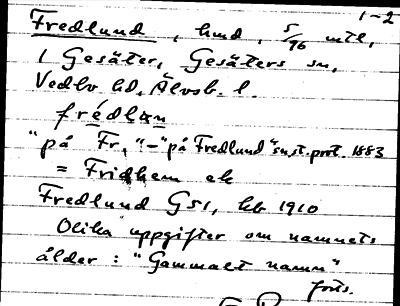 1-2
Fredlund, hmd, 5/96 mtl,
1 Gesäter, Gesäters sn,
Vedbo hd, Älvsb. l.
frédlɯn
"på Fr, "–"på Fredlund" sn.st.prot. 1883
= Fridhem ek
Fredlund GS1, kb 1910
Olika uppgifter om namnets
ålder : "Gammalt namn"
forts.